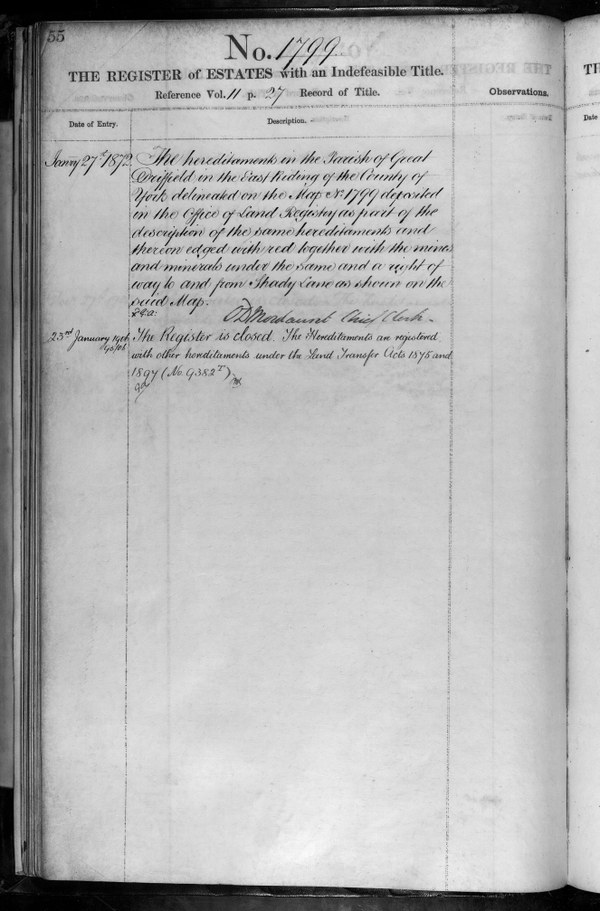 55
No. 1799
THE REGISTER of ESTATES with an Indefeasible Title.
Reference Vol. 11 p. 27 Record of Title.
Observations.
Date of Entry.
Description.
Janry 27th 1872
The hereditaments in the Parish of Great
Driffield in the East Riding of the County of
York delineated on the Map No 1799 deposited
in the Office of Land Registry as part of the
description of the same hereditaments and
thereon edged with red together with the mines
and minerals under the same and a right of
way to and from Shady Lane as shown on the
said Map.
Mordaunt Chief Clerk
23rd January
The Register is closed. The Hereditaments are registered
with other hereditaments under the Land Transfer Acts 1875 and
1897 (No 9382)
TH
Date